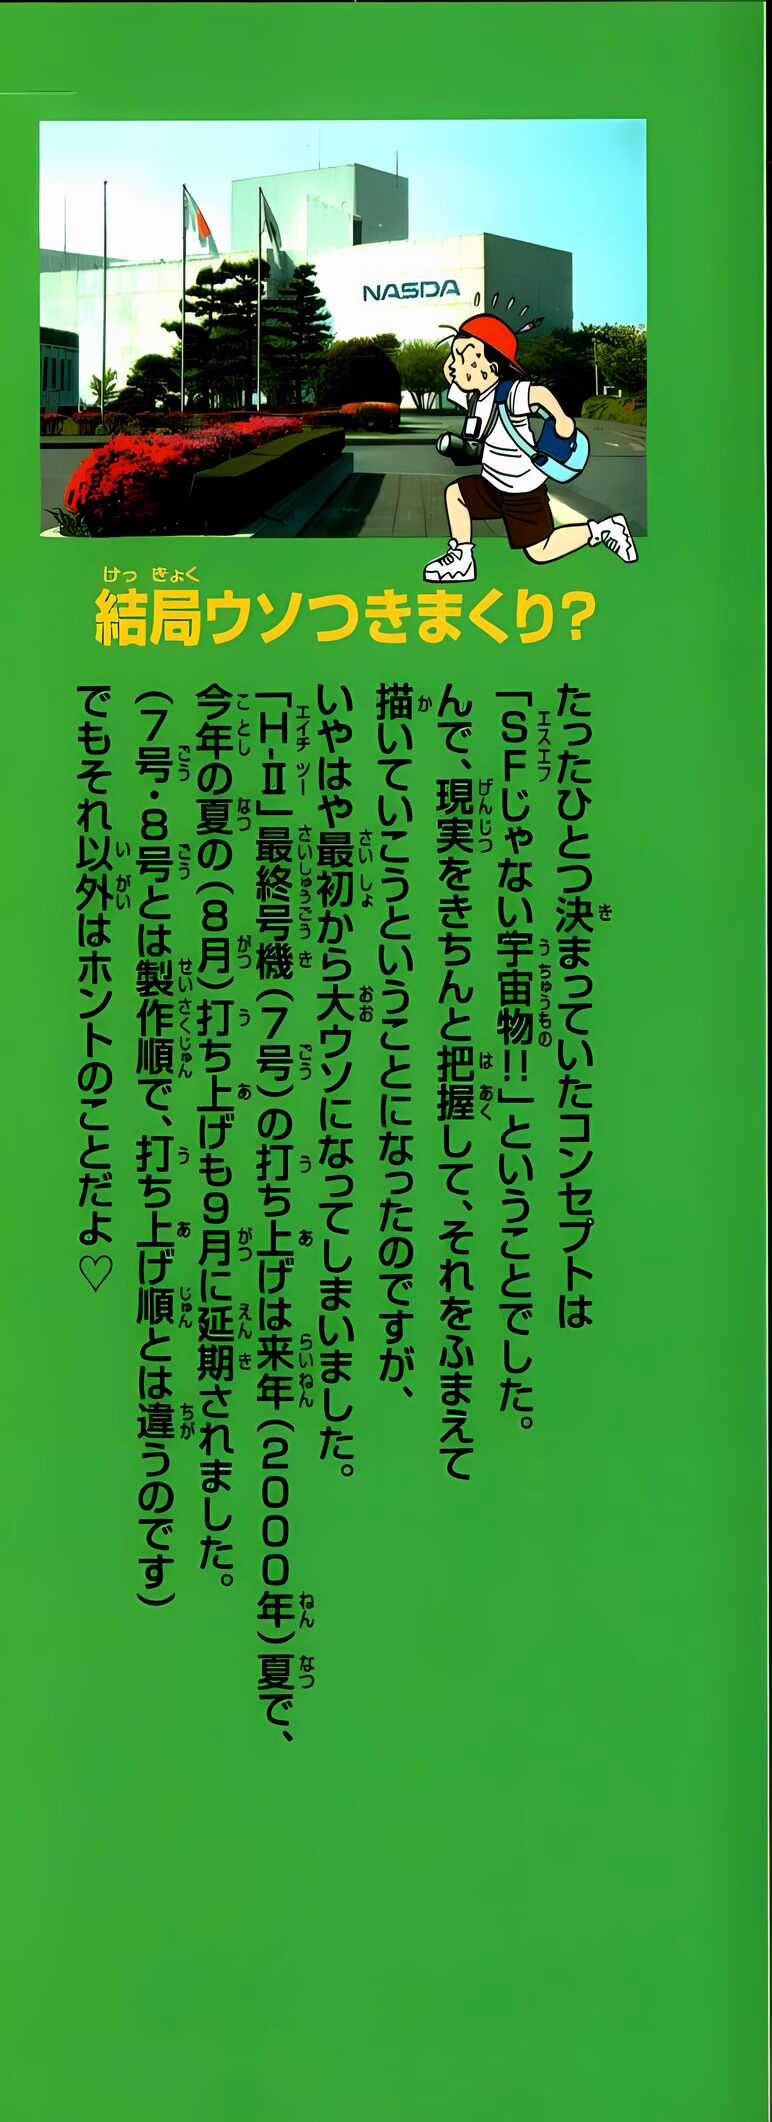 NASDA
結局ウソつきまくり?
たったひとつ決まっていたコンセプトは
「SFじゃない宇宙物!!」ということでした。
んで、現実をきちんと把握して、それをふまえて
描いていこうということになったのですが、
いやはや最初から大ウソになってしまいました。
「H-Ⅱ」最終号機(7号)の打ち上げは来年(2000年)夏で、
今年の夏の(8月)打ち上げも9月に延期されました。
(7号・8号とは製作順で、打ち上げ順とは違うのです)
でもそれ以外はホントのことだよ♡